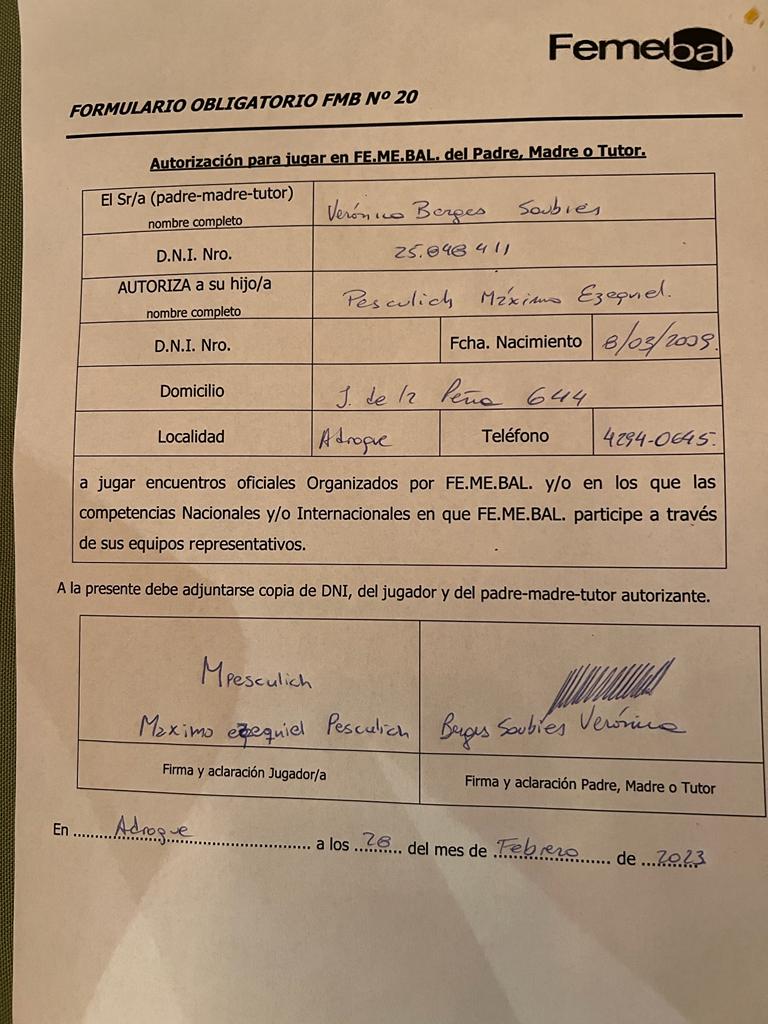 Femebal
FORMULARIO OBLIGATORIO FMB Nº 20
Autorización para jugar en FE.ME.BAL. del Padre, Madre o Tutor.
El Sr/a (padre-madre-tutor)
nombre completo
Verónica Berges Soubies
D.N.I. Nro.
25.848411
AUTORIZA a su hijo/a
nombre completo
Pesculich Máximo Ezequiel.
D.N.I. Nro.
Fcha. Nacimiento
8/03/2009.
Domicilio
J. de la Peña 644
Localidad
Adrogue
Teléfono
4294-0645.
a jugar encuentros oficiales Organizados por FE.ME.BAL. y/o en los que las
competencias Nacionales y/o Internacionales en que FE.ME.BAL. participe a través
de sus equipos representativos.
A la presente debe adjuntarse copia de DNI, del jugador y del padre-madre-tutor autorizante.
Mpesculich
Maximo ezequiel Pesculich
Berges Soubies Verónica
Firma y aclaración Jugador/a
Firma y aclaración Padre, Madre o Tutor
En ..... Adrogue ..... a los 28 del mes de Febrero de 2023